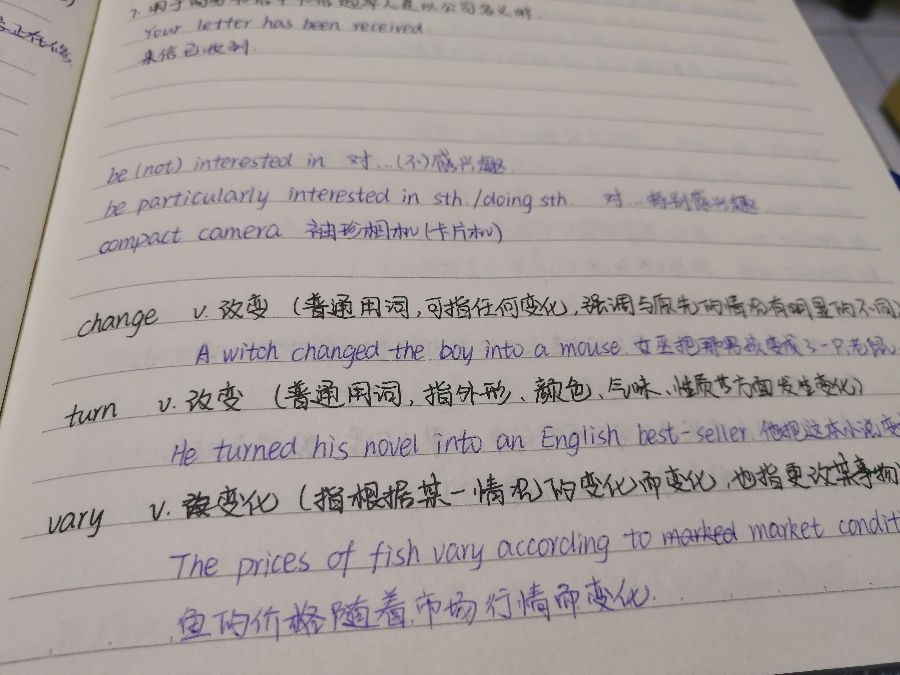 7. 用于商务书信中
Your letter has been received.
来信已收到.
正在修
be (not) interested in 对...(不)感兴趣
be particularly interested in sth./doing sth. 对...特别感兴趣
compact camera 袖珍相机(卡片机)
change v. 改变 (普通用词,可指任何变化,强调与原先的情况有明显的不同)
A witch changed the boy into a mouse. 女巫把那男孩变成了一只老鼠
turn v. 改变 (普通用词, 指外形、颜色、气味、性质等方面发生变化)
He turned his novel into an English best-seller. 他把这本小说变
vary v. 变化 (指根据某一情况的变化而变化, 也指更改某事物
The prices of fish vary according to marked market condit
鱼的价格随着市场行情而变化.